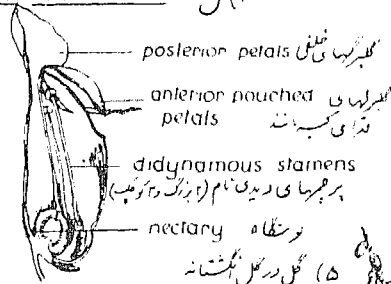 posterior petals گلبرگهای خلفی
anterior pouched گلبرگهای
petals قدامی کیسه مانند
didynamous stamens
پرچمهای دیدی نام (۲ بزرگ و ۲ کوچک)
nectary نوشگاه
۵) گل در گل انگشتانه